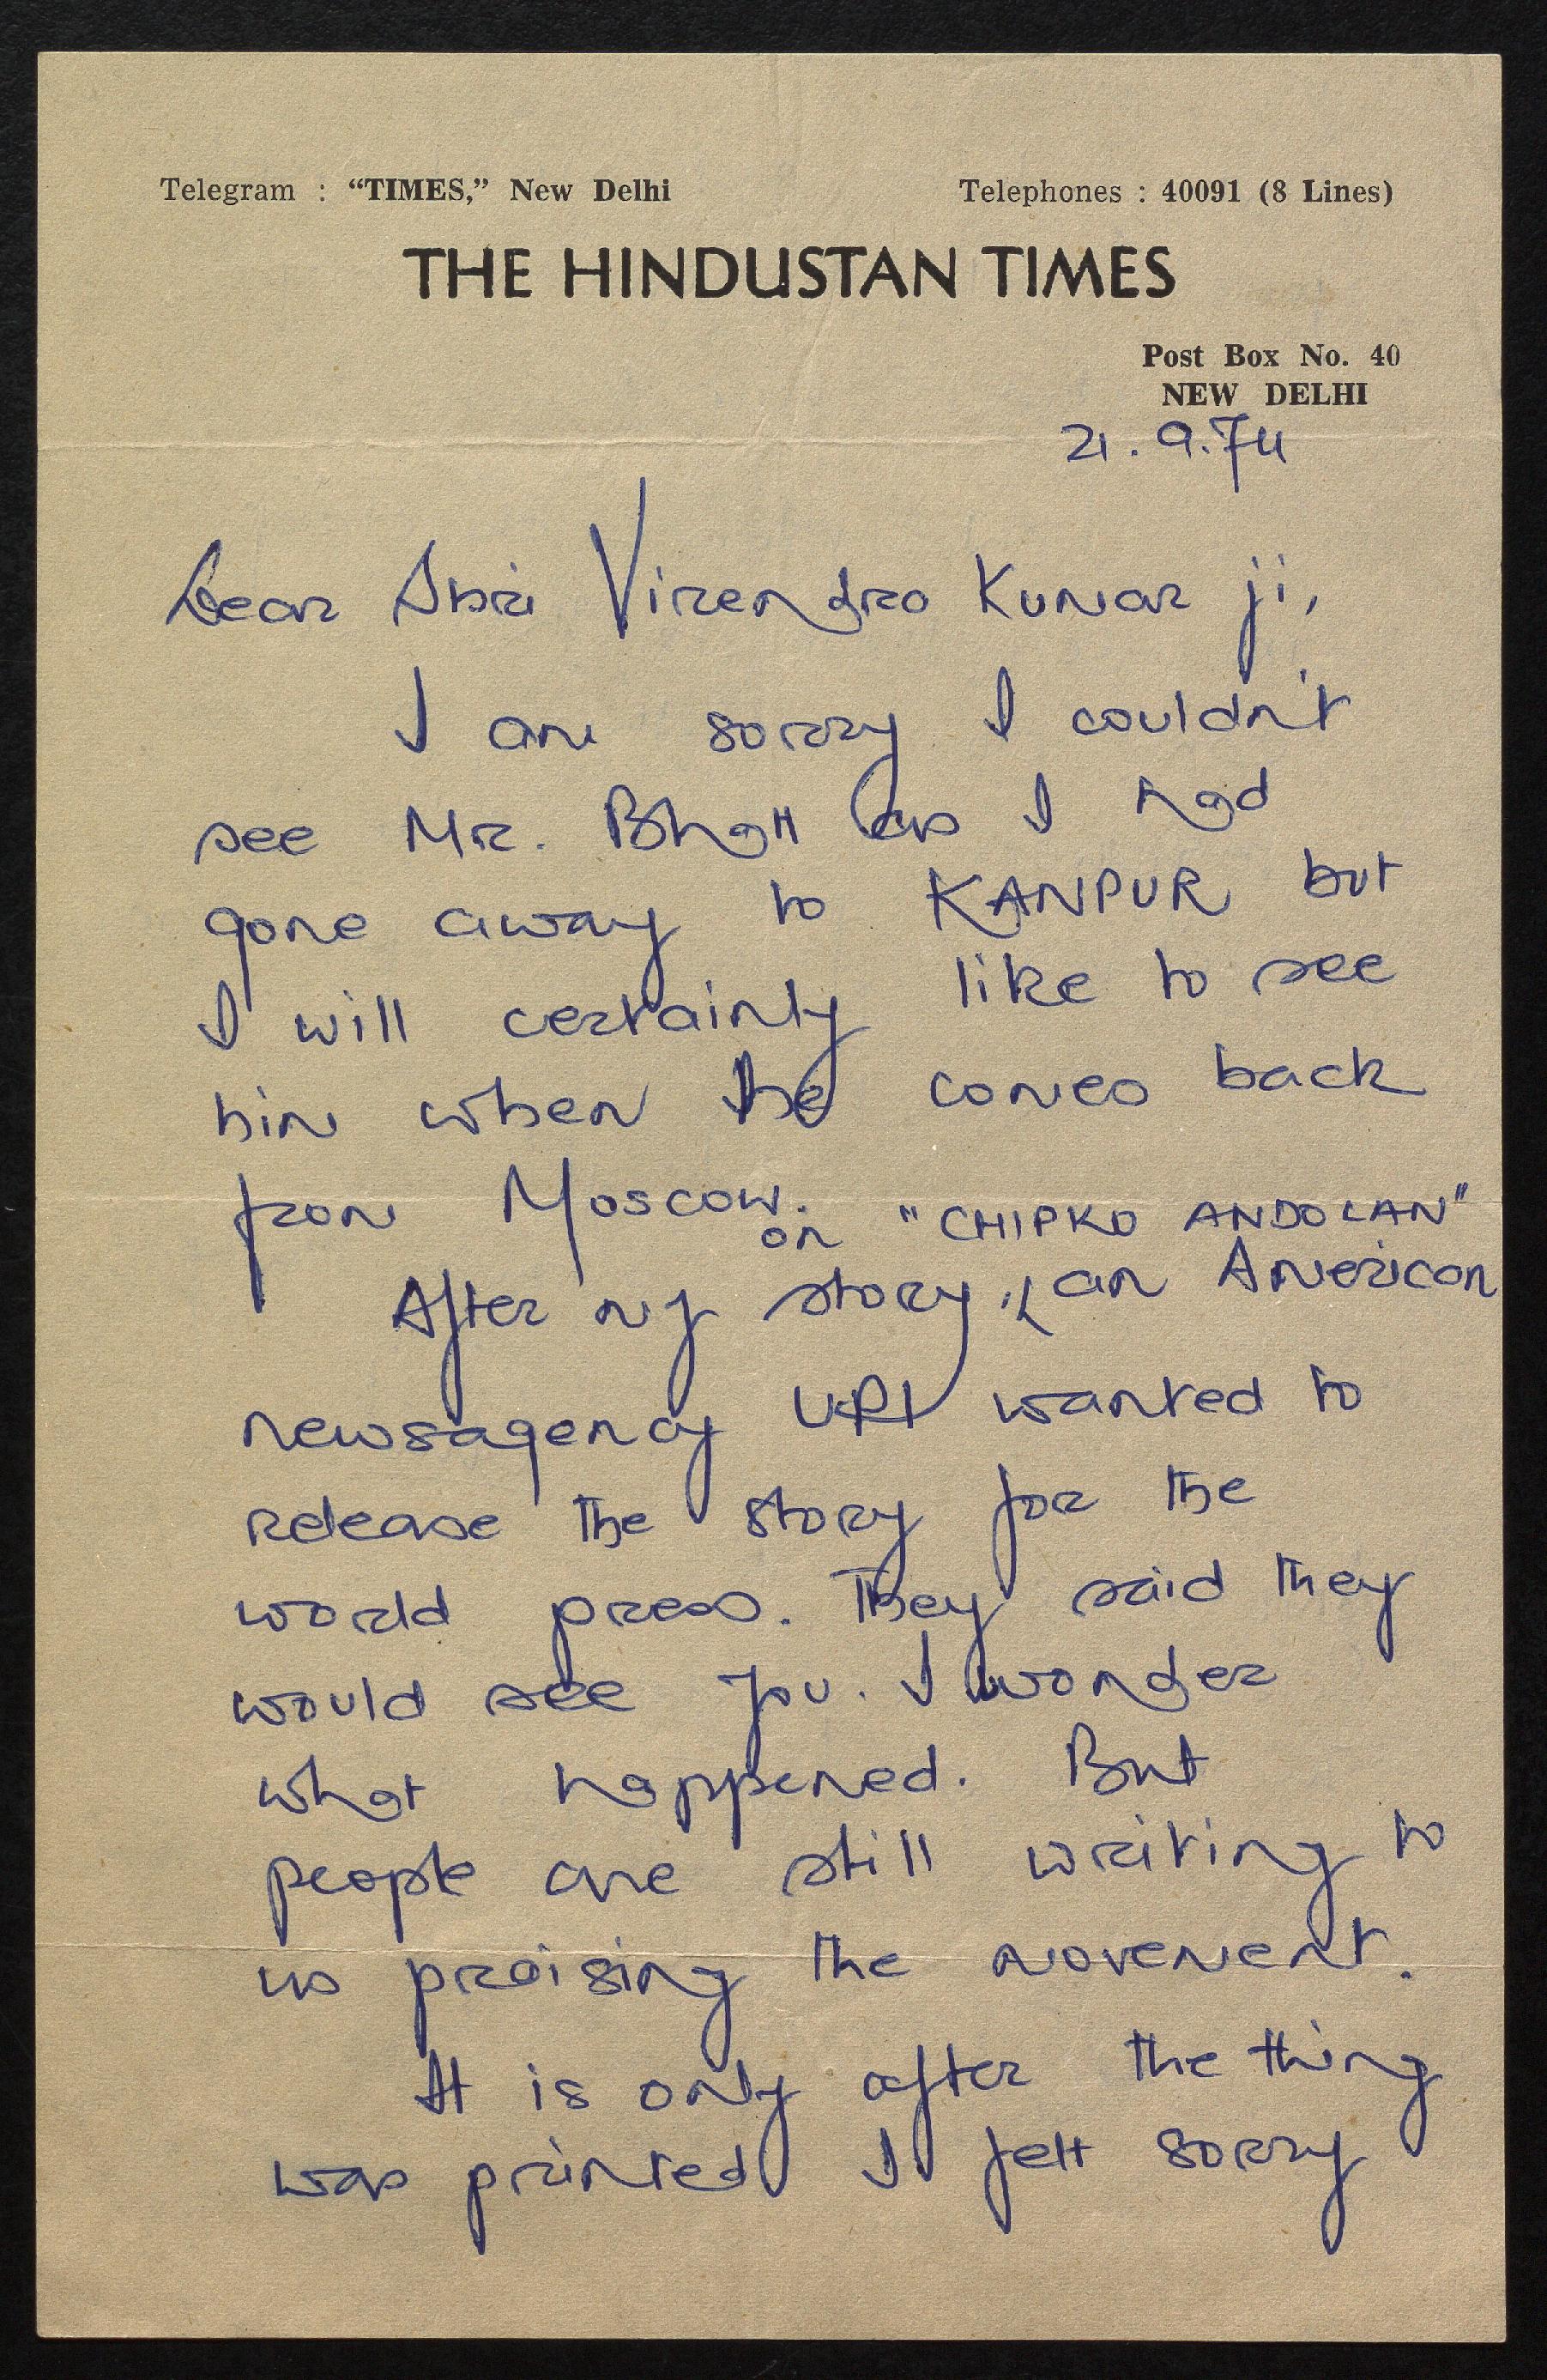 Telegram : "TIMES," New Delhi Telephones : 40091 (8 Lines)
THE HINDUSTAN TIMES
Post Box No. 40
NEW DELHI
21.9.74
Dear Shri Virendra Kumar ji,
I am sorry I couldn't
see Mr. Bhatt as I had
gone away to KANPUR but
I will certainly like to see
him when he comes back
from Moscow.
on "CHIPKO ANDOLAN"
After my story, an American
newsagency UPI wanted to
release the story for the
world press. They said they
would see you. I wonder
what happened. But
people are still writing to
us praising the movement.
It is only after the thing
was printed I felt sorry